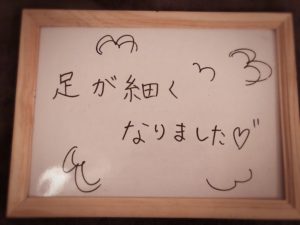 足が細く
なりました♡